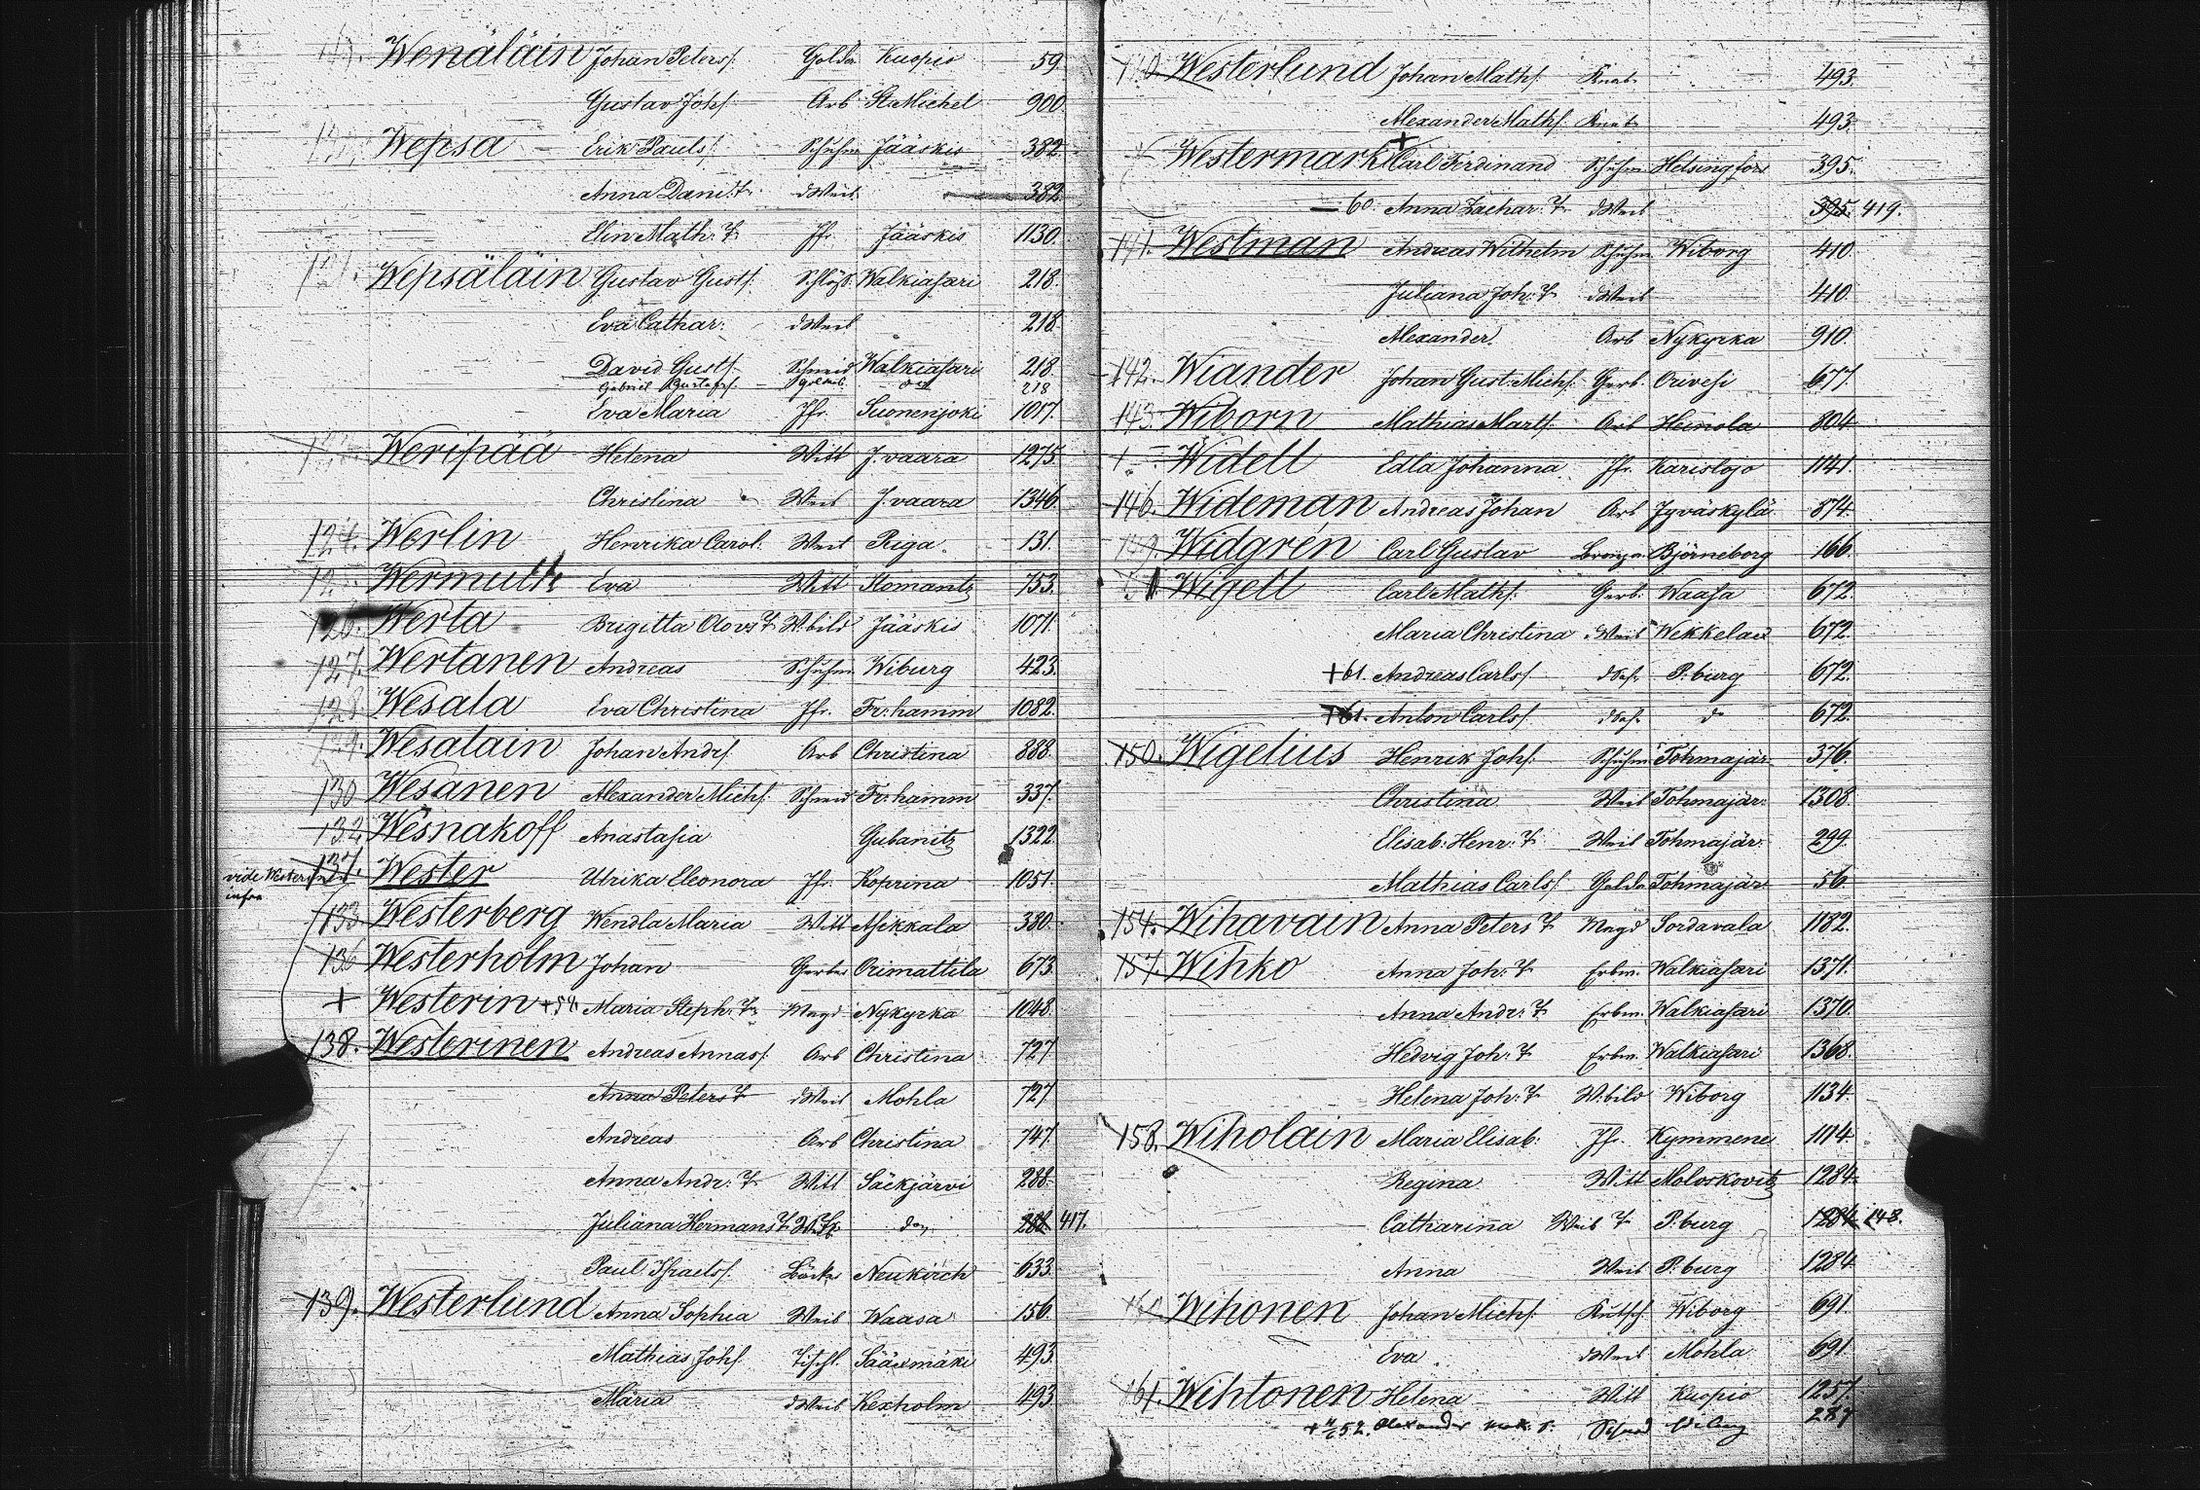 Wenäläin Johan Peters. Golda Kuopio 59
Gustav Joh. Arb St Michel 900.
Wepsa Erik Pauls. Schuhm Jääskis 382
Anna Dan. T. d Weib 382
Elin Math. T. Jfr. Jääskis 1130.
121. Wepsäläin Gustav Gust. Schloss. Walkiasari 218.
Eva Cathar: d Weib 218
David Gust. Schneid Walkiasari 218.
Gabriel Gustafs. 218
Eva Maria Jfr. Suonenjoki 1017.
Weripää Helena Witt J.vaara 1275.
Christina Weib J.vaara 1346.
124. Werlin Henrika Carol: Weib Riga. 131.
Wermuth Eva Witt Ilomantz 753.
126. Werta Brigitta Olovs T W.bild Jääskis 1071.
127. Wertanen Andreas Schuhm Wiburg 423.
128. Wesala Eva Christina Jfr. Fr:hamm 1082.
129. Wesalain Johan Andr. Arb Christina 888.
130 Wesanen Alexander Mich. Schneid Fr:hamm 337.
132 Wesnakoff Anastasia Gubanitz 1322.
vide Westerinen infra 137. Wester Ulrika Eleonora Jfr. Koprina 1051.
133 Westerberg Wendla Maria Witt Asikkala 380.
136 Westerholm Johan Gerber Orimattila 673
+ Westerin +54 Maria Steph. T. Magd Nykyrka 1048.
138. Westerinen Andreas Annas. Arb Christina 727
Anna Peters T d Weib Mohla 727
Andreas Arb Christina 747.
Anna Andr. T. Witt Säckjärvi 288.
Juliana Hermans T. do 288 417.
Paul Israels. Bäcker Neukirch 633.
139. Westerlund Anna Sophia Weib Waasa 156.
Mathias Joh. Tischl. Sääxmäki 493
Maria d Weib Kexholm 493
140. Westerlund Johan Math. Knab. 493.
Alexander Math. Knab. 493.
Westermark + Carl Ferdinand Schuhm Helsingfors 395.
— 60. Anna Zachar. T. d Weib 395. 419.
141. Westman Andreas Wilhelm Schuhm Wiborg 410.
Juliana Joh. T. d Weib 410.
Alexander. Arb Nykyrka 910.
142. Wiander Johan Gust. Mich. Gerb. Orivesi 677.
143. Wiborn Mathias Mart. Arb Heinola 804
Widell Edla Johanna Jfr. Karislojo 1141.
146. Wideman Andreas Johan Arb Jyväskylä 874.
149. Widgrén Carl Gustav Bronza Björneborg 166.
Wigell Carl Math. Gerb. Waasa 672.
Maria Christina d Weib Wekkelax 672.
+61. Andreas Carls. P.burg 672.
+61. Anton Carls. d 672.
150. Wigelius Henrik Joh. Schuhm Tohmajär 376.
Christina Weib Tohmajär. 1308.
Elisab. Henr. T. Weib Tohmajär. 299.
Mathias Carls. Golda Tohmajär 56
154. Wihavain Anna Peters T Magd Sordavala 1182.
157. Wihko Anna Joh. T. Erbm. Walkiasari 1371.
Anna Andr. T. Erbm. Walkiasari 1370.
Hedvig Joh. T. Erbm. Walkiasari 1368.
Helena Joh. T. W.bild Wiborg 1134.
158. Wiholain Maria Elisab: Jfr. Kymmene 1114.
Regina Witt Moloskovitz 1284.
Catharina Weib T. P.burg 1284. 148.
Anna Weib P.burg 1284
160 Wihonen Johan Mich. Kutsch Wiborg 691.
Eva d Weib Mohla 691
161. Wihtonen Helena Witt Kuopio 1257.
52. Alexander Schmd Wiburg 287